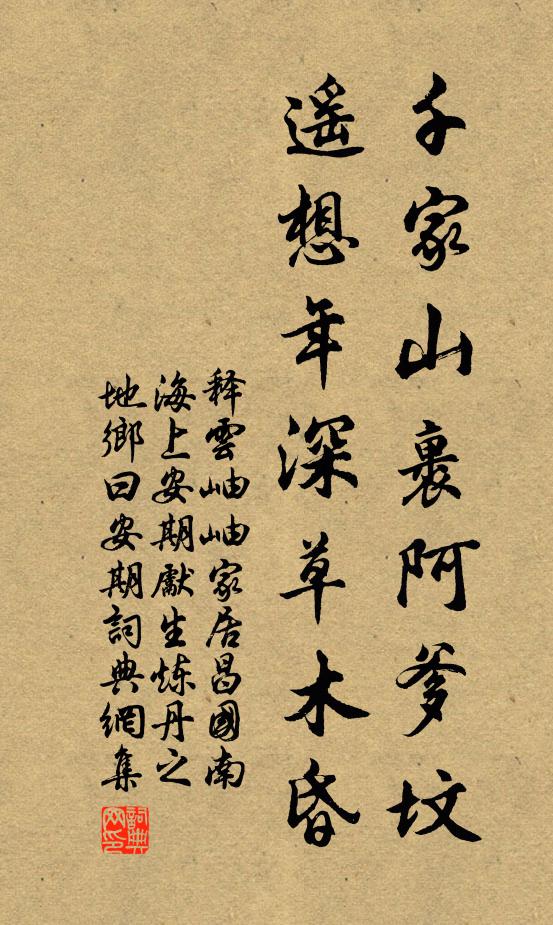 千家山裹阿爹坟
遥想年深草木昏
释雲岫岫家居昌國南
海上安期獻生炼丹之
地鄉曰安期詞典網集
詞典网印